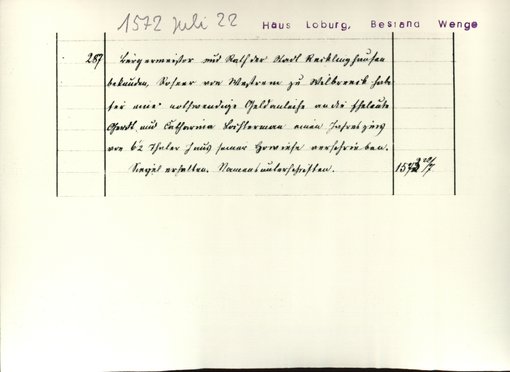 1572 Juli 22 Haus Loburg, Bestand Wenge
287 Bürgermeister und Rath der Stadt Recklinghausen
bekunden, von Westrem zu habe
für eine nothwendige Geldanleihe an die Eheleute
Gerdt und Catharina einen Jahreszins
von 6½ Thaler aus seiner verschrieben.
Siegel erhalten. Namensunterschriften. 1572 22/7